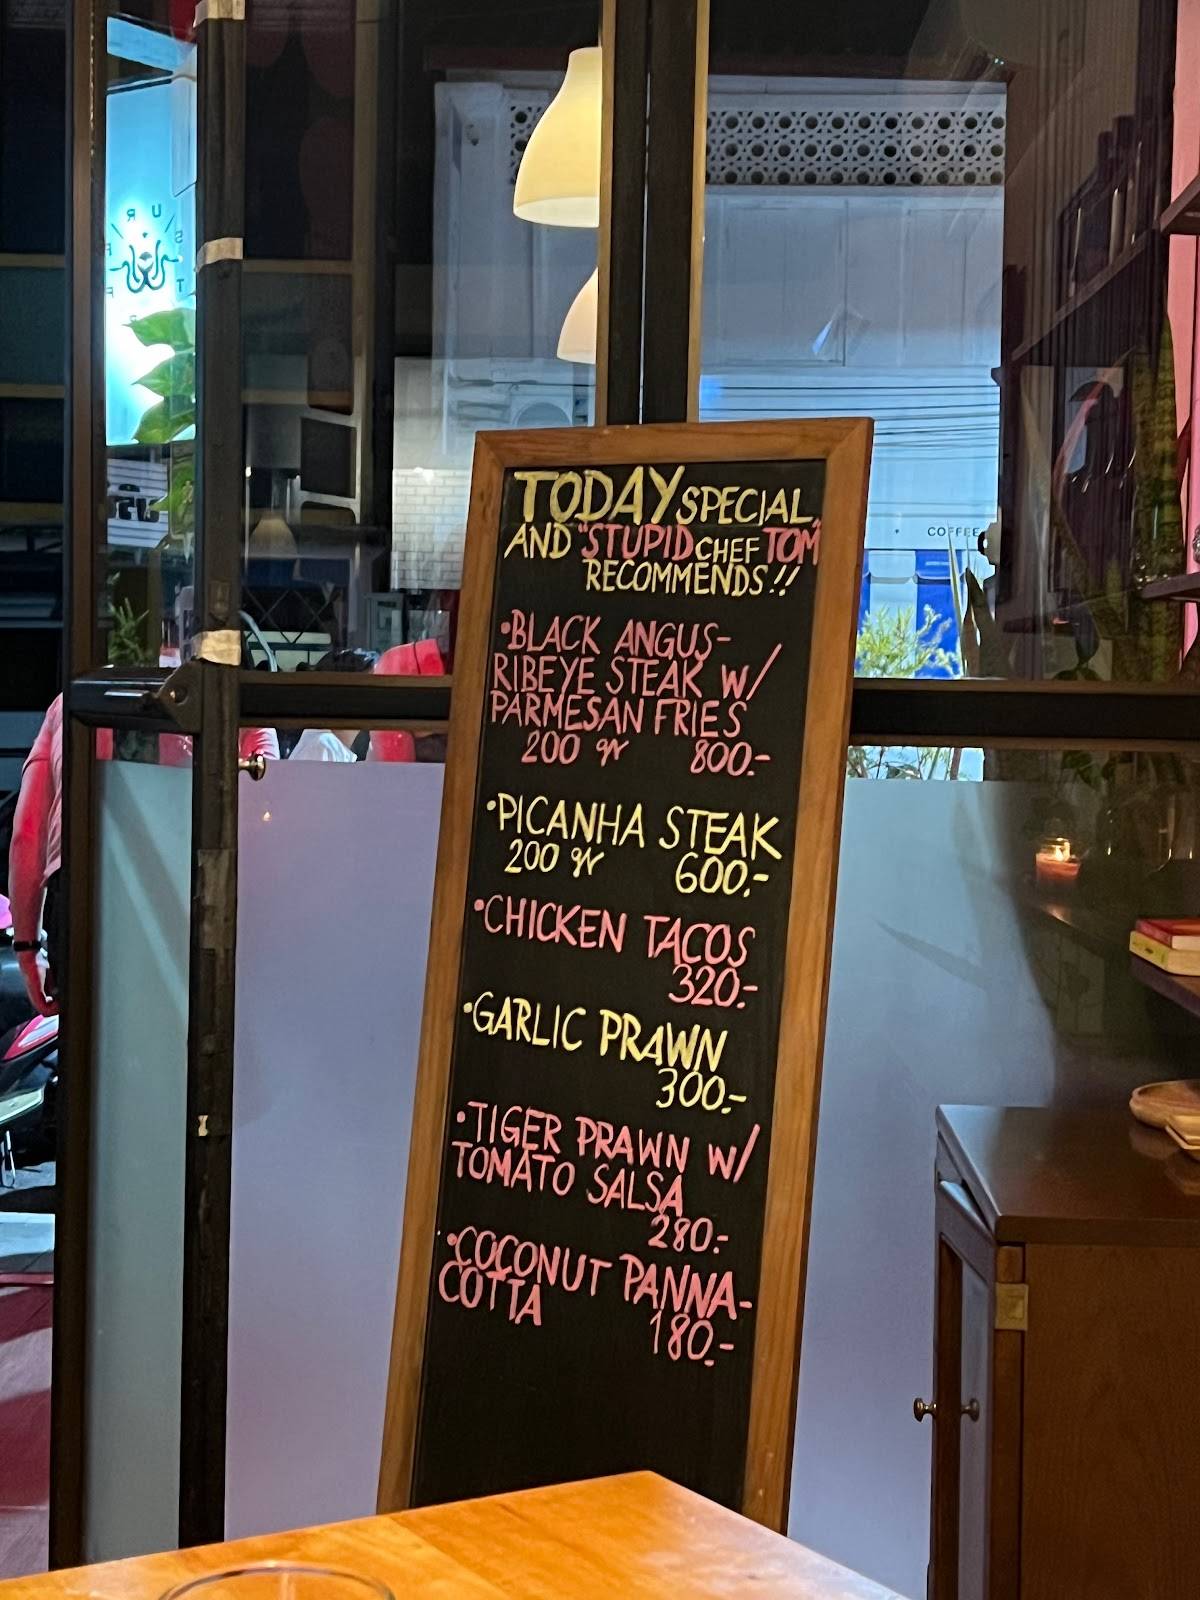 TODAY SPECIAL
AND "STUPID CHEF TOM"
RECOMMENDS!!
•BLACK ANGUS-
RIBEYE STEAK W/
PARMESAN FRIES
200 gr 800.-
•PICANHA STEAK
200 gr 600.-
•CHICKEN TACOS
320.-
•GARLIC PRAWN
300.-
•TIGER PRAWN W/
TOMATO SALSA
280.-
•COCONUT PANNA-
COTTA
180.-
COFFEE